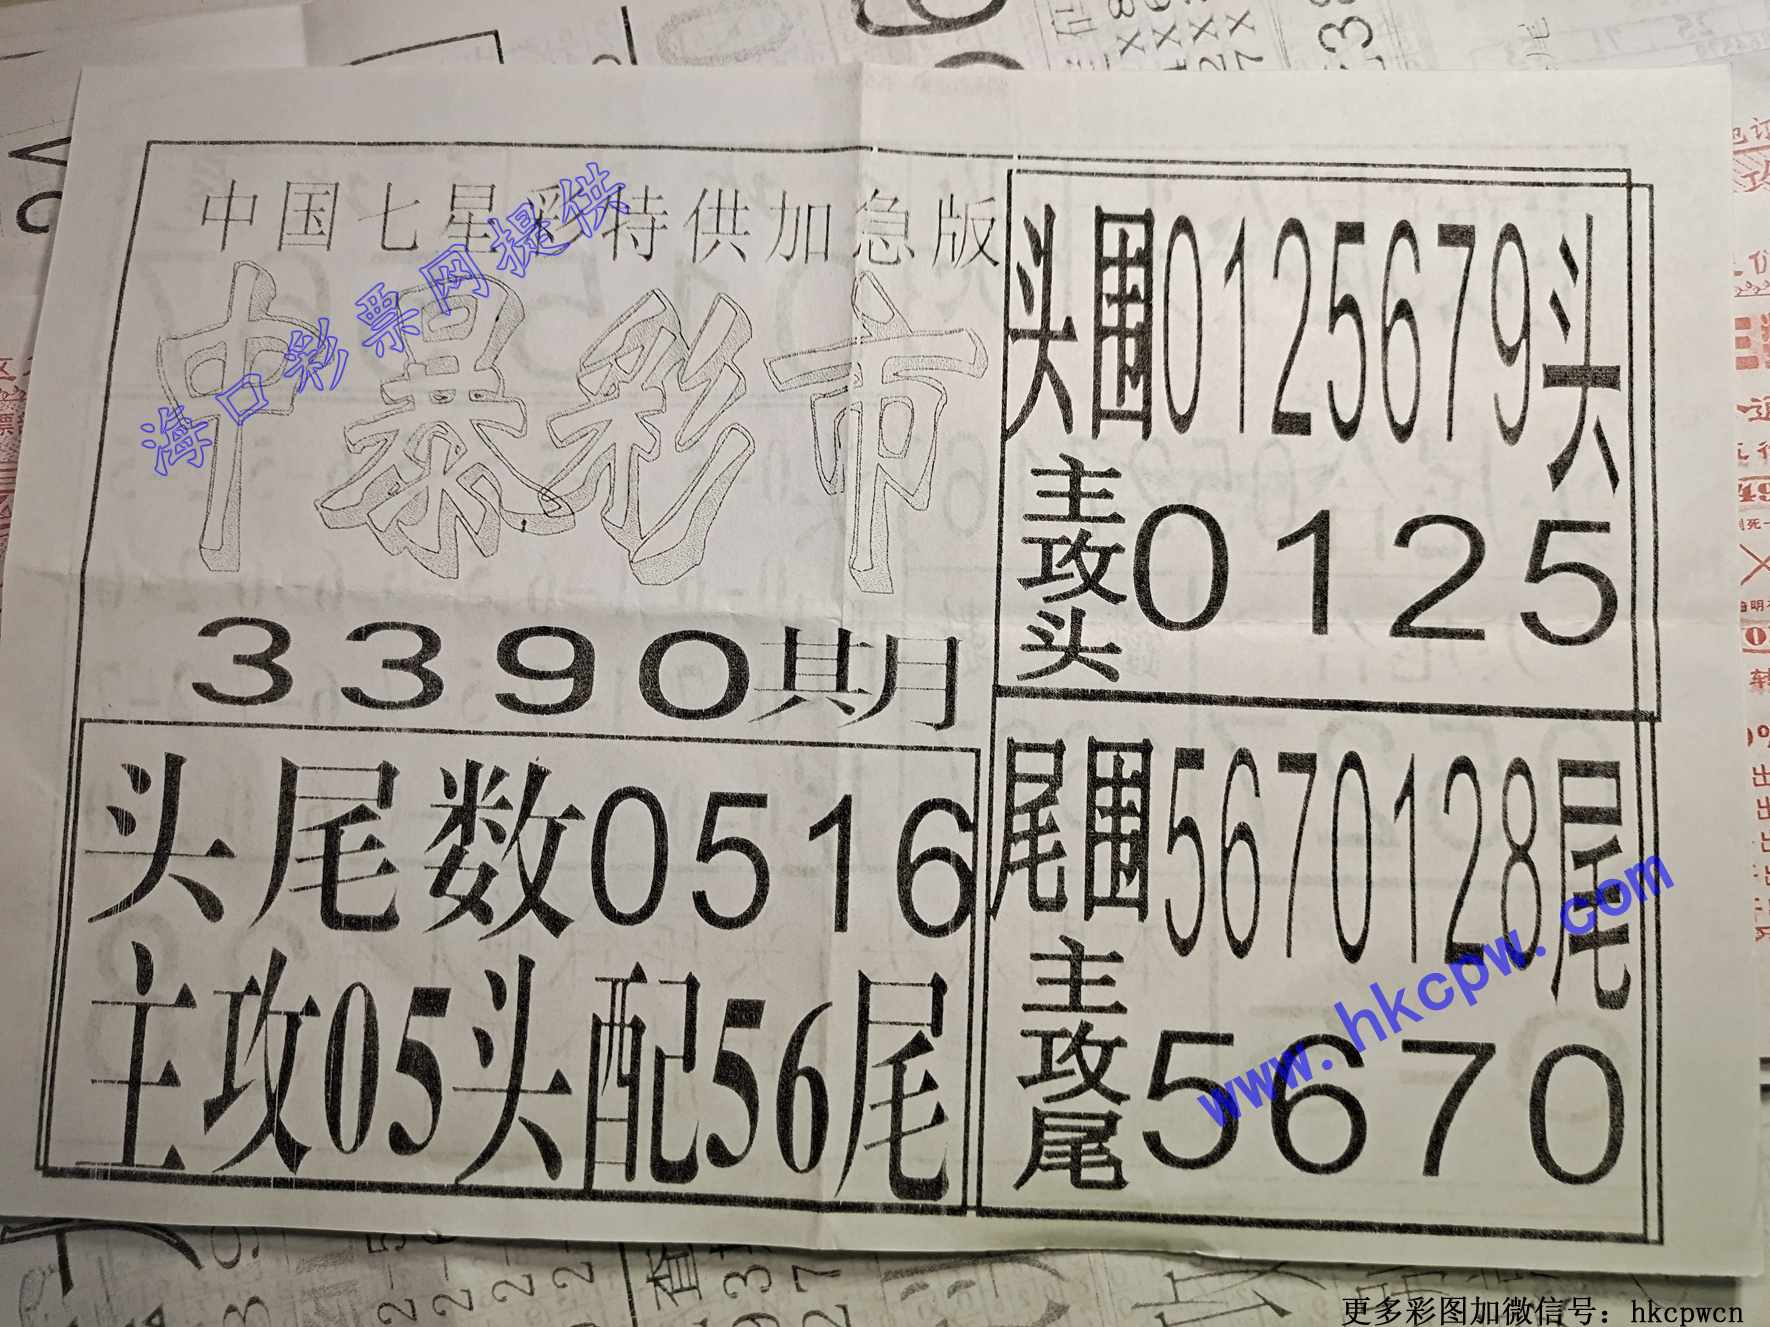 中国七星彩特供加急版
中暴彩市
3390期
头尾数0516
主攻05头配56尾
头围0125679头
主攻头0125
尾围5670128尾
主攻尾5670
海口彩票网提供
www.hkcpw.com
更多彩图加微信号：hkcpwcn